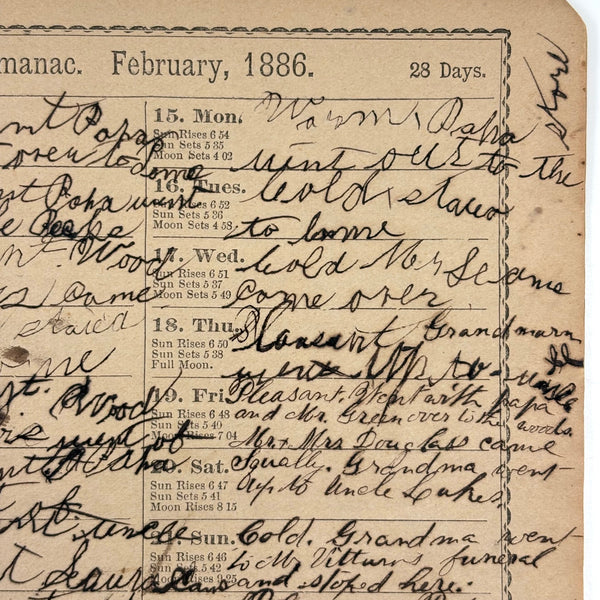 manac. February, 1886. 28 Days.
store
15. Mon.
Sun Rises 6 54
Sun Sets 5 35
Moon Sets 4 02
Warm, Papa
went out to the
16. Tues.
Sun Rises 6 52
Sun Sets 5 36
Moon Sets 4 58
Cold staied
to home
17. Wed.
Sun Rises 6 51
Sun Sets 5 37
Moon Sets 5 49
Cold Mr
came over
18. Thu.
Sun Rises 6 50
Sun Sets 5 38
Full Moon.
Pleasant Grandmarm
went up to
19. Fri.
Sun Rises 6 48
Sun Sets 5 49
Moon Rises 7 04
Pleasant. Went with papa
and Mr. Green over to the woods.
Mr & Mrs Douglass came
20. Sat.
Sun Rises 6 47
Sun Sets 5 41
Moon Rises 8 15
Squally. Grandma went
up to Uncle Lukes.
21. Sun.
Sun Rises 6 46
Sun Sets 5 42
Moon Rises 9 25
Cold. Grandma went
to Mr. funeral
and stoped here.
nt Papa
over to
nt Papa went
Wood
came
staied
ome
Wood
went
Papa
uncle
Laura